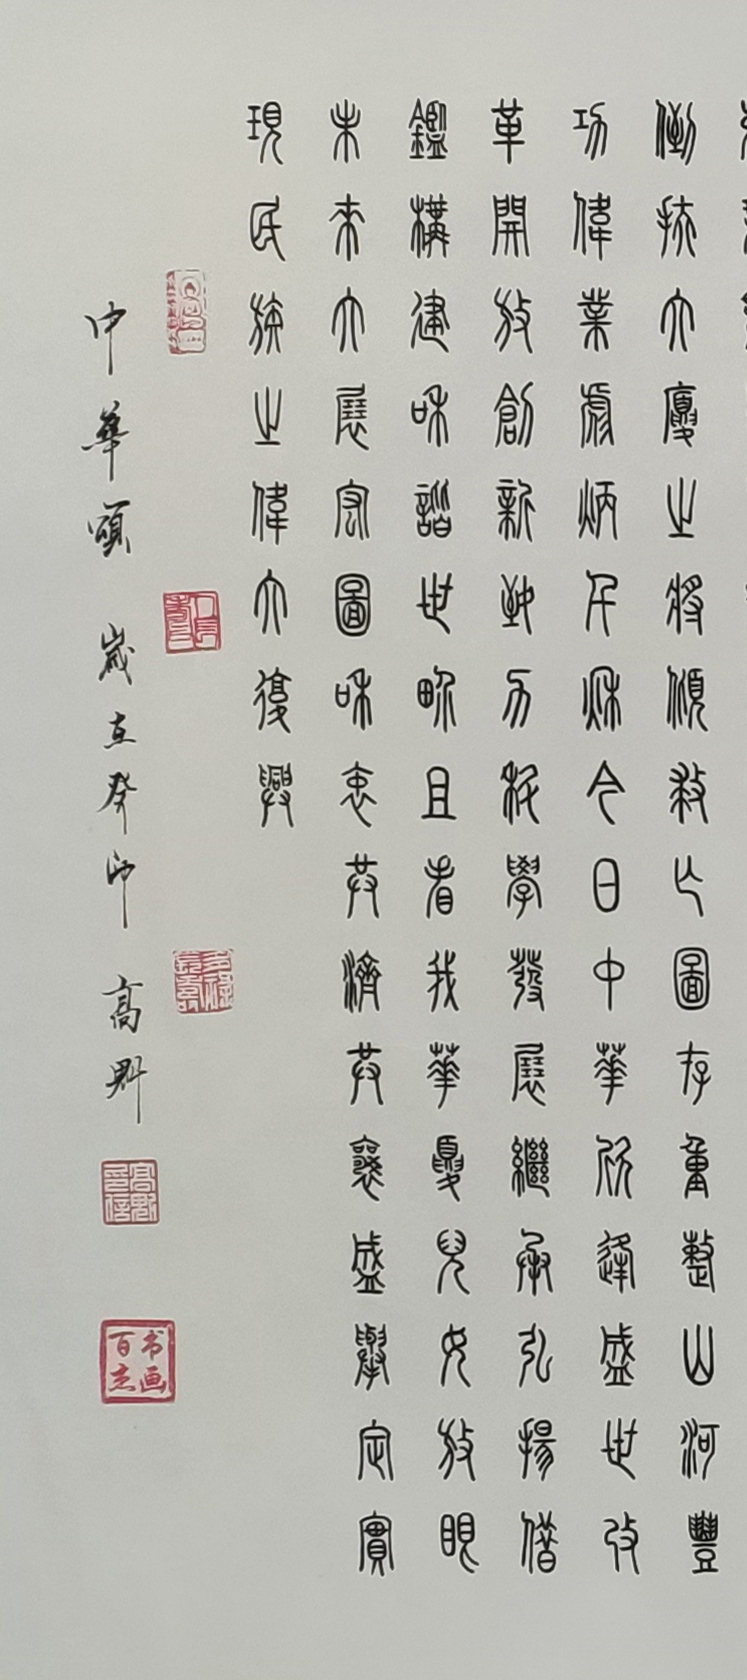 扶大廈之將傾救亡圖存重整山河豐
功偉業彪炳千秋今日中華欣逢盛世改
革開放創新致力科學發展繼承弘揚借
鑑構建和諧世界且看我華夏兒女放眼
未來大展宏圖和衷共濟共襄盛舉定實
現民族之偉大復興
中華頌 歲在癸卯 高
书画百杰